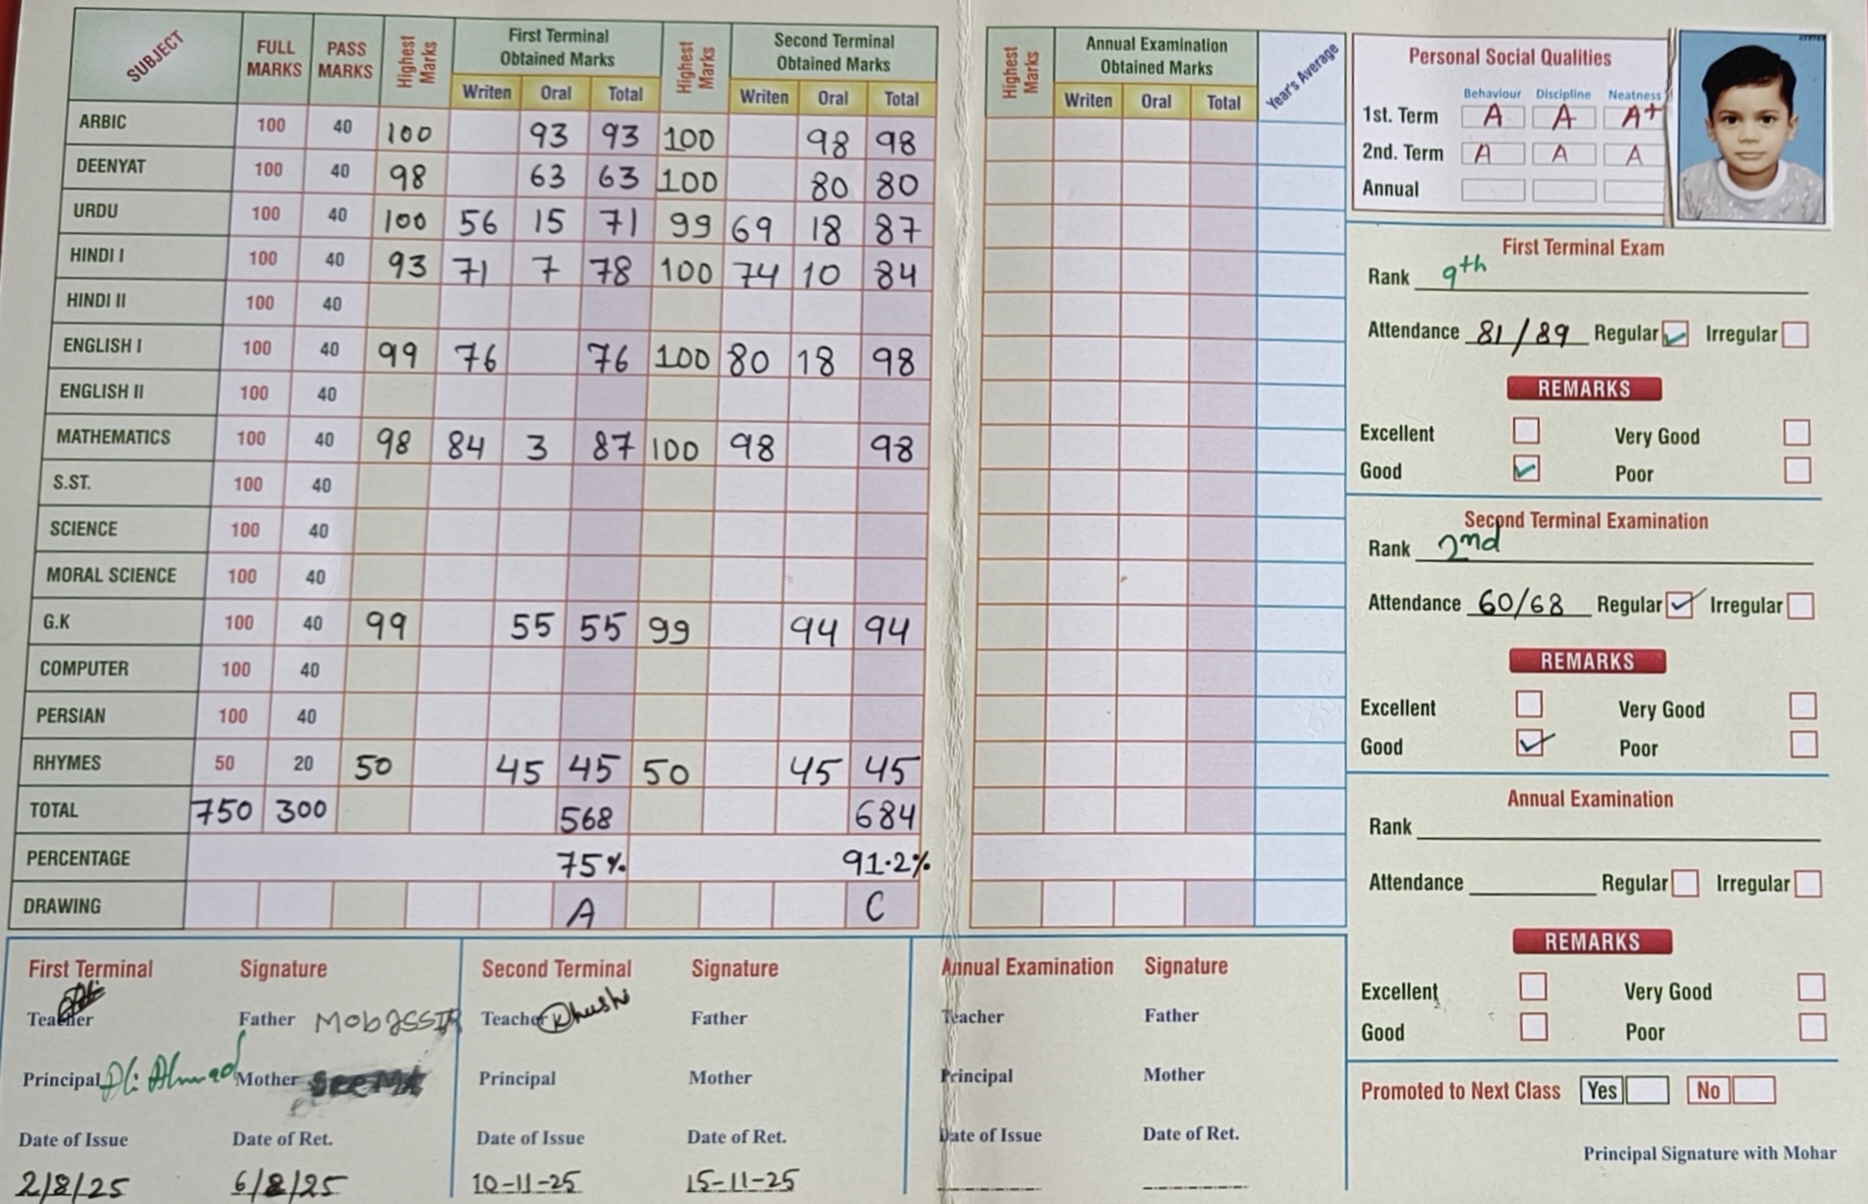 SUBJECT FULL MARKS PASS MARKS Highest Marks First Terminal Obtained Marks Highest Marks Second Terminal Obtained Marks Highest Marks Annual Examination Obtained Marks Year's Average
Writen Oral Total Writen Oral Total Writen Oral Total
ARBIC 100 40 100 93 93 100 98 98
DEENYAT 100 40 98 63 63 100 80 80
URDU 100 40 100 56 15 71 99 69 18 87
HINDI I 100 40 93 71 7 78 100 74 10 84
HINDI II 100 40
ENGLISH I 100 40 99 76 76 100 80 18 98
ENGLISH II 100 40
MATHEMATICS 100 40 98 84 3 87 100 98 98
S.ST. 100 40
SCIENCE 100 40
MORAL SCIENCE 100 40
G.K 100 40 99 55 55 99 94 94
COMPUTER 100 40
PERSIAN 100 40
RHYMES 50 20 50 45 45 50 45 45
TOTAL 750 300 568 684
PERCENTAGE 75% 91.2%
DRAWING A C
Personal Social Qualities
Behaviour Discipline Neatness
1st. Term A A A+
2nd. Term A A A
Annual
First Terminal Exam
Rank 9th
Attendance 81/89 Regular Irregular
REMARKS
Excellent Very Good
Good Poor
Second Terminal Examination
Rank 2nd
Attendance 60/68 Regular Irregular
REMARKS
Excellent Very Good
Good Poor
Annual Examination
Rank
Attendance Regular Irregular
REMARKS
Excellent Very Good
Good Poor
Promoted to Next Class Yes No
Principal Signature with Mohar
First Terminal Signature Second Terminal Signature Annual Examination Signature
Teacher Father MobassIR Teacher Khushi Father Teacher Father
Principal Ali Ahmad Mother SEEMA Principal Mother Principal Mother
Date of Issue Date of Ret. Date of Issue Date of Ret. Date of Issue Date of Ret.
2/8/25 6/8/25 10-11-25 15-11-25